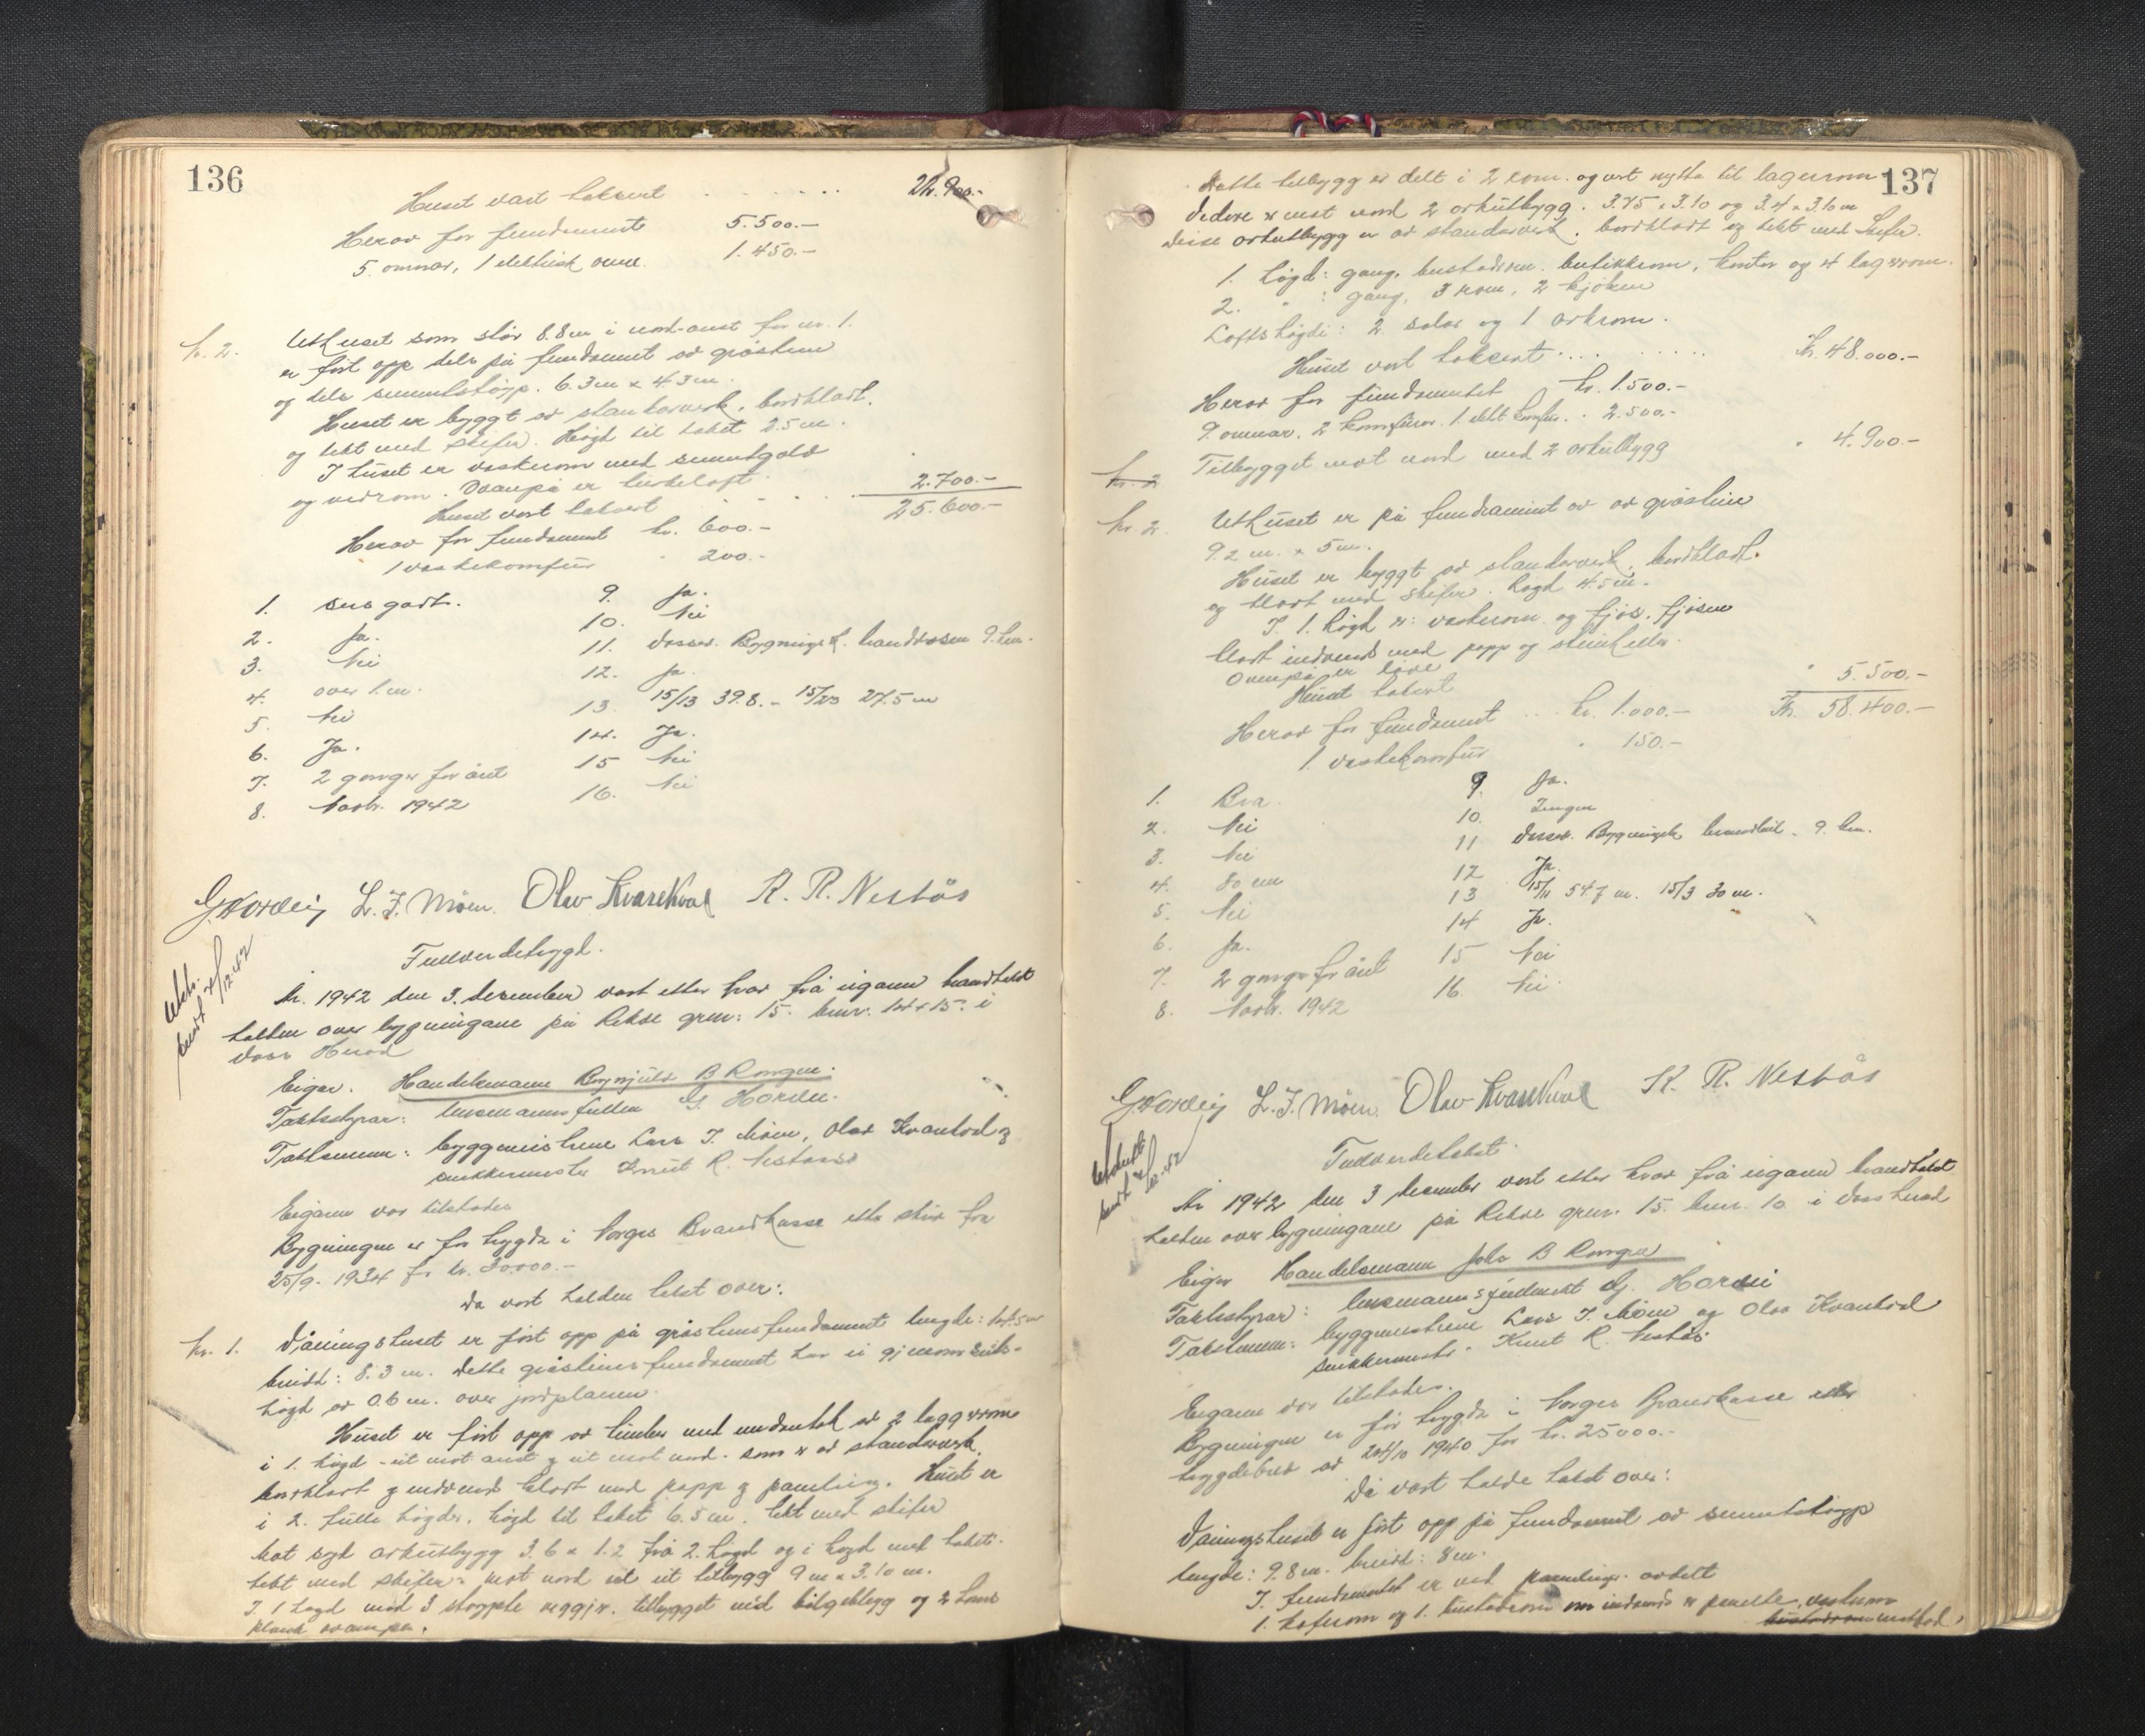 136
Huset vart taksert . . . . . . 22.900.-
Herav for fundamente 5.500.-
5 omnar, 1 elektrisk omn. 1.450.-
Nr. 2. Uthuset som står 8.8 m i nord-aust for nr. 1.
er ført opp dels på fundament av gråstein
og dels sementstøyp. 6.3 m x 4.3 m.
Huset er byggt av standarverk, bordkledt,
og tekt med skifer. Høgd til taket 2.5 m.
I huset er vaskerom med sementgolv
og vedrom. Ovanpå er loft 2.700.-
Huset vart taksert 25.600.-
Herav for fundament kr. 600.-
1 vaskekomfur " 200.-
1. sers godt. 9. Ja.
2. Ja. 10. Nei
3. Nei 11. Vossev. Bygningsk. 9. km.
4. over 1. m. 12. Ja.
5. Nei 13. 15/13 39.8. - 15/23 27.5 m
6. Ja. 14. Ja.
7. 2 gonger for året 15 Nei
8. Novbr. 1942 16. Nei
G Horvei L. J. Møen. Olav Kvarekval K. R. Nestås
Utskr.
sendt 4/12-42
År 1942 den 3. desember vart etter krav frå eigaren brandtakst
halden over bygningane på Rekve gnr: 15. bnr. 14 & 15. i
Voss Herad
Eigar. Handelsmann Brynjulv B Rongen.
Takststyrar: lensmannsfullm G. Horvei.
Takstmenn: byggmeistrane Lars J. Møen, Olav Kvarekval og
snikkermeister Knut R. Nestaas
Eigaren var tilstades
Bygningen er før trygda i Norges Brandkasse etter skriv frå
25/9. 1934 for kr. 30.000.-
Da vart halden takst over:
Nr. 1. Våningshuset er ført opp på gråsteinsfundament lengde: 14.5 m
breidd: 8.3 m. Dette gråsteinsfundament har ei gjennomsnits-
høgd av 0.6 m. over jordplanen.
Huset er ført opp av timber med undantak av 2 lagerrom
i 1. høgd - eit mot aust og eit mot nord. som er av standarverk,
bordkledt og innvendes kledt med papp og paneling. Huset er
i 2. fulle høgder, høgd til taket 6.5 m. tekt med skifer
Mot syd arkutbygg 3.6 x 1.2 frå 2. høgd og i høgd med taket.
tekt med skifer. Mot nord eit eit tilbygg 9 m x 3.10 m.
I 1 høgd med 3 støypte veggjer. tilbygget med bølgeblegg og 2 toms
plank ovanpå.
137
Dette tilbygg er delt i 2 rom. og vert nytta til lagerrom
Vidare er mot nord 2 arkutbygg. 3.75 x 3.10 og 3.4 x 3.10 m
Disse arkutbygg er av standarverk, bordkledt og tekt med skifer.
1. høgd: gang, bustadrom. butikkrom, kontor og 4 lagerrom.
2. " : gang, 3 rom, 2 kjøken
Loftshøgdi: 2. salar og 1 arkrom.
Huset vart taksert . . . . . . Kr. 48.000.-
Herav for fundamentet kr. 1.500.-
9. omnar. 2 komfurar. 1 elkt komfur. . 2.500.-
Nr. 2 Tilbygget mot nord med 2 arkutbygg " 4.900-
Nr. 2. Uthuset er på fundament av av gråstein
9.2 m. x 5 m.
Huset er byggt av standarverk. bordkledt.
og tekt med skifer. høgd 4.5 m.
I. 1. høgd er: vaskerom. og fjøs. fjøsen
kledt innvendes med papp og
Ovanpå er løe
Huset taksert " 5.500.-
Herav for fundament .. kr. 1.000.- Kr. 58.400.-
1. vaskekomfur " 150.-
1. Bra 9. Ja.
2. Nei 10. Ingen
3. Nei 11 Vossev. Bygningsk. 9. km.
4. 80 cm 12 Ja.
5. Nei 13 15/11 54.7 m. 15/3 30 m.
6. Ja. 14 Ja.
7. 2 gonger for året 15 Nei
8. Novbr. 1942 16. Nei.
G Horvei L. J. Møen. Olav Kvarekval K. R. Nestås
Utskrift
sendt 4/12-42
År 1942 den 3 desember vart etter krav frå eigaren brandtakst
halden over bygningane på Rekve gnr. 15. bnr. 10 i Voss herad
Eigar Handelsmann John B Rongen
Takststyrar: lensmannsfullmekt G. Horvei
Takstmenn: byggmeistrene Lars J. Møen og Olav Kvarekval
snikkermeistr. Knut R. Nestås.
Eigaren var tilstades.
Bygningen er før trygda i Norges Brandkasse etter
trygdebrev av 24/10 1940 for kr. 25000.-
Da vart halde takst over:
Våningshuset er ført opp på fundament av sementstøyp
lengde: 9.8 m. breidd: 8 m.
I. fundamentet er ved panelingar avdelt
1. kosterom og 1. bustadrom